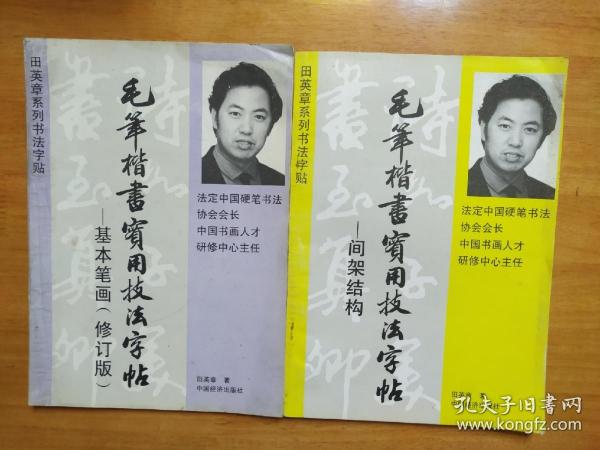 田英章系列书法字贴
毛筆楷書實用技法字帖
—基本笔画(修订版)
法定中国硬笔书法
协会会长
中国书画人才
研修中心主任
田英章 著
中国经济出版社
田英章系列书法字贴
毛筆楷書實用技法字帖
—间架结构
法定中国硬笔书法
协会会长
中国书画人才
研修中心主任
田英章 著
中国经济出版社
孔夫子旧书网
www.kongfz.com